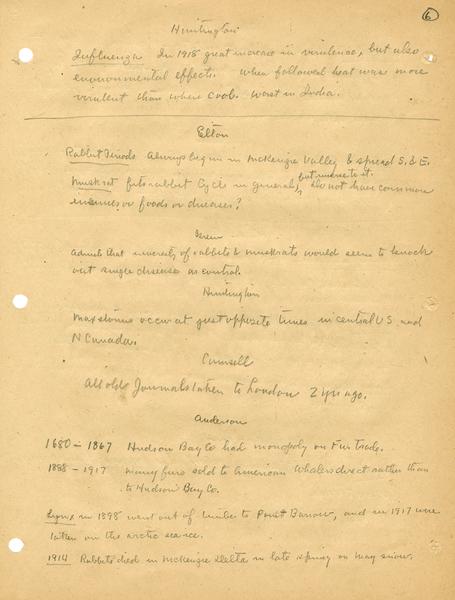 6
Huntington
Influenza In 1918 great increase in virulence, but also
environmental effects. When followed heat was more
virulent than where cool. Worst in India.
Elton
Rabbit Periods Always begin in McKenzie Valley & spread S. & E.
but inverse to it.
Muskrat fits rabbit cycle in general, Do not have common
enemies or foods or diseases?
Green
Admits that inversity of rabbits & muskrats would seem to knock
out single disease as control.
Huntington
Max storms occur at just opposite times in central U.S. and
N Canada.
All old Journals taken to London 2 yrs ago.
Anderson
1680 - 1867 Hudson Bay Co had monopoly on Fur Trade.
1888 - 1917 Many furs sold to American Whalers direct rather than
to Hudson Bay Co.
Lynx in 1898 went out of timber to Point Barrow, and in 1917 were
taken on the arctic sea ice.
1914 Rabbits died in McKenzie Delta in late spring on May snow.